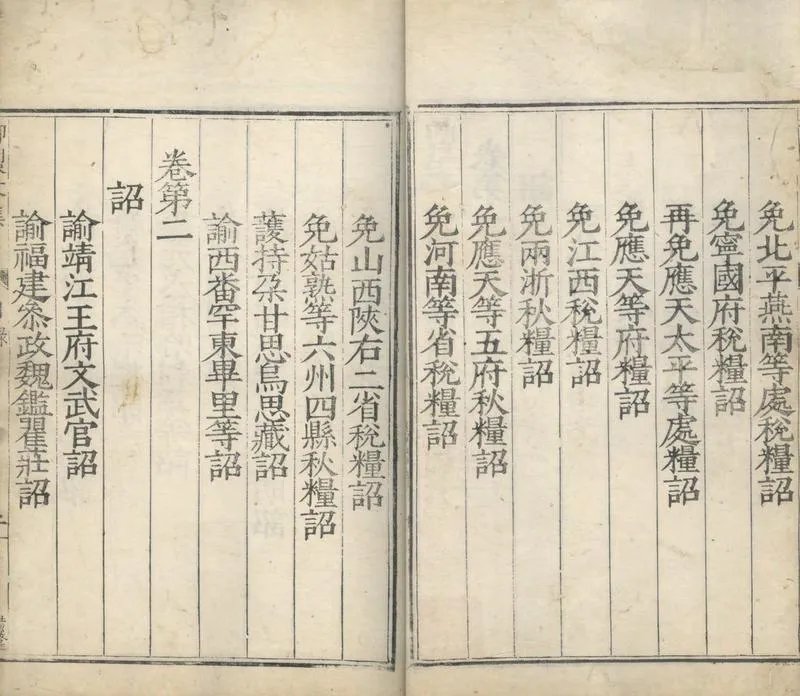 免北平燕南等處稅糧詔
免寧國府稅糧詔
再免應天太平等處糧詔
免應天等府糧詔
免江西稅糧詔
免兩浙秋糧詔
免應天等五府秋糧詔
免河南等省稅糧詔
免山西陝右二省稅糧詔
免姑熟等六州四縣秋糧詔
護持朶甘思烏思藏詔
諭西番罕東畢里等詔
卷第二
詔
諭靖江王府文武官詔
諭福建叅政魏鑑瞿莊詔